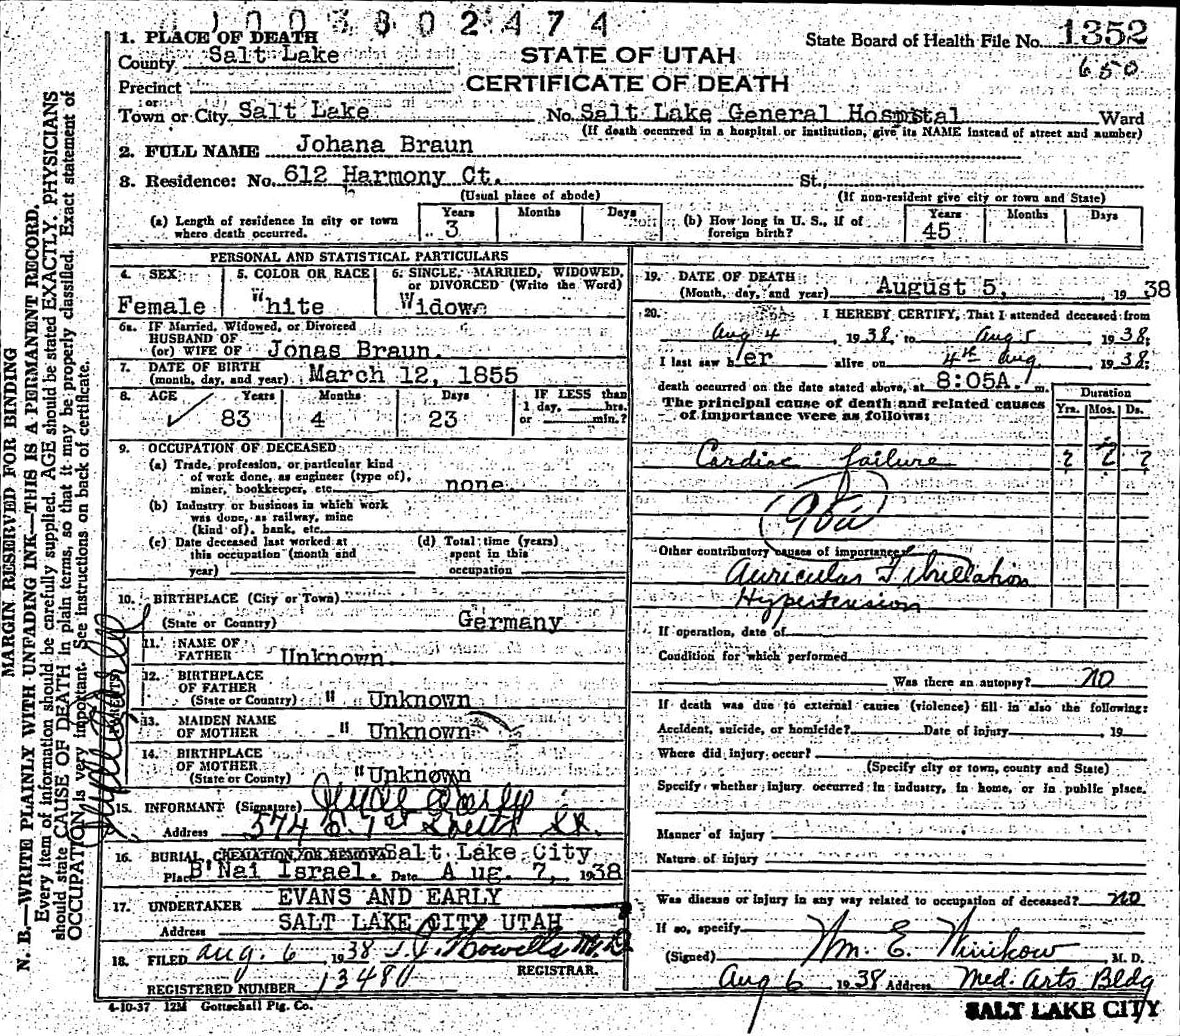 1003802474
1. PLACE OF DEATH
County Salt Lake
Precinct
or
Town or City Salt Lake
STATE OF UTAH
CERTIFICATE OF DEATH
State Board of Health File No. 1352
650
No. Salt Lake General Hospital Ward
(If death occurred in a hospital or institution, give its NAME instead of street and number)
2. FULL NAME Johana Braun
3. Residence: No. 612 Harmony Ct. St.,
(Usual place of abode) (If non-resident give city or town and State)
(a) Length of residence in city or town where death occurred. Years 3 Months Days
(b) How long in U. S., if of foreign birth? Years 45 Months Days
MARGIN RESERVED FOR BINDING
N. B.—WRITE PLAINLY WITH UNFADING INK—THIS IS A PERMANENT RECORD.
Every item of information should be carefully supplied. AGE should be stated EXACTLY. PHYSICIANS
should state CAUSE OF DEATH in plain terms, so that it may be properly classified. Exact statement of
OCCUPATION is very important. See instructions on back of certificate.
PERSONAL AND STATISTICAL PARTICULARS
4. SEX 5. COLOR OR RACE 6. SINGLE, MARRIED, WIDOWED, or DIVORCED (Write the Word)
Female White Widowe
6a. IF Married, Widowed, or Divorced
HUSBAND OF
(or) WIFE OF Jonas Braun.
7. DATE OF BIRTH
(month, day, and year) March 12, 1855
8. AGE Years Months Days IF LESS than
1 day, hrs.
or min.?
83 4 23
9. OCCUPATION OF DECEASED
(a) Trade, profession, or particular kind
of work done, as engineer (type of),
miner, bookkeeper, etc. none
(b) Industry or business in which work
was done, as railway, mine
(kind of), bank, etc.
(c) Date deceased last worked at
this occupation (month and
year)
(d) Total time (years)
spent in this
occupation
10. BIRTHPLACE (City or Town)
(State or Country) Germany
11. NAME OF
FATHER Unknown
12. BIRTHPLACE
OF FATHER
(State or Country) " Unknown
13. MAIDEN NAME
OF MOTHER " Unknown
14. BIRTHPLACE
OF MOTHER
(State or County) "Unknown
15. INFORMANT (Signature)
Address 574 E 1st South
16. BURIAL CREMATION OR REMOVAL Salt Lake City
Place B'Nai Israel. Date Aug. 7, 1938
17. UNDERTAKER EVANS AND EARLY
Address SALT LAKE CITY UTAH
18. FILED Aug. 6 1938 T. J. Howells M.D.
REGISTRAR.
REGISTERED NUMBER 13480
4-10-37 12M Gottschall Ptg. Co.
19. DATE OF DEATH
(Month, day, and year) August 5, 1938
20. I HEREBY CERTIFY, That I attended deceased from
Aug 4, 1938, to Aug 5 1938;
I last saw her alive on 4th Aug 1938;
death occurred on the date stated above, at 8:05A. m.
The principal cause of death and related causes
of importance were as follows:
Duration
Yrs. Mos. Ds.
Cardiac failure ? ? ?
Other contributory causes of importance:
Auricular Fibrillation
Hypertension
If operation, date of
Condition for which performed
Was there an autopsy? no
If death was due to external causes (violence) fill in also the following:
Accident, suicide, or homicide? Date of injury 19
Where did injury occur?
(Specify city or town, county and State)
Specify whether injury occurred in industry, in home, or in public place.
Manner of injury
Nature of injury
Was disease or injury in any way related to occupation of deceased? no
If so, specify
(Signed) Wm. E. M. D.
Aug 6 1938 Address Med. Arts Bldg
SALT LAKE CITY